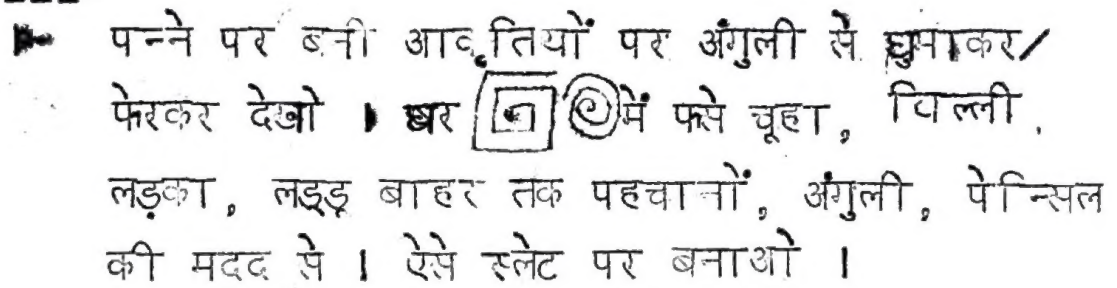 पन्ने पर बनी आकृतियों पर अंगुली से घुमाकर/
फेरकर देखो । घर में फसे चूहा, बिल्ली,
लड़का, लड्डू बाहर तक पहचानों, अंगुली, पेन्सिल
की मदद से । ऐसे स्लेट पर बनाओ ।